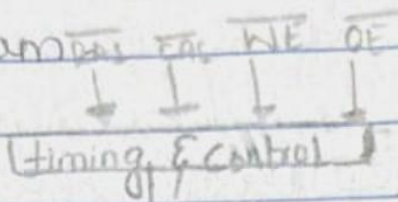 RAS CAS WE OE
timing & control